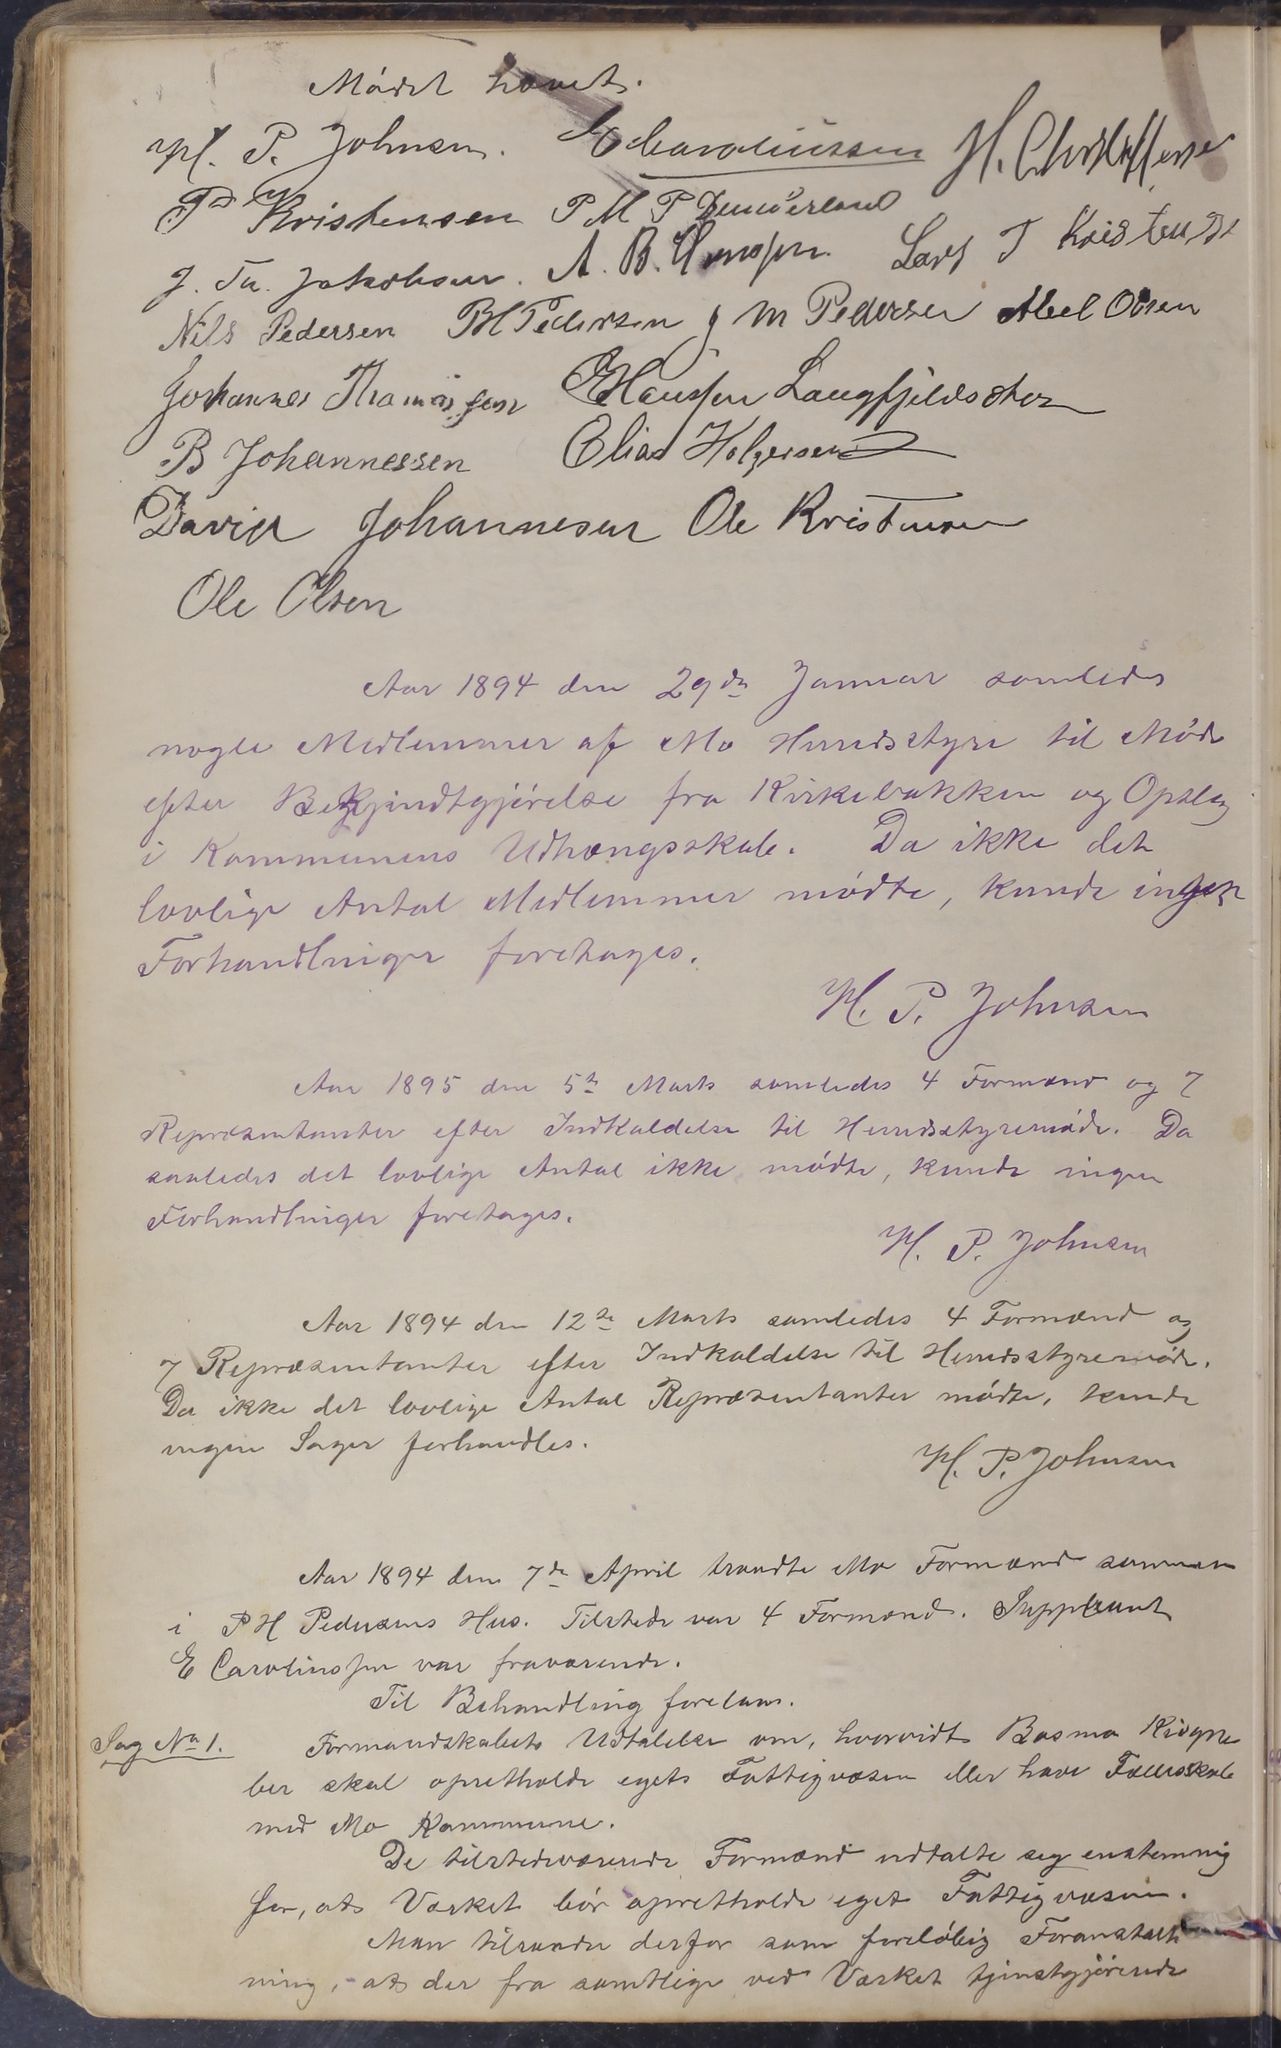 Mødet hævet.
H. P. Johnsen. E Caroliussen H. Christoffersen
P Kristensen P M P Dunderland
J. Th. Jakobsen. A. B. Hansen. Lars J Kristensen
Nils Pedersen P H Pedersen J M Pedersen Abel Olsen
Johannes Thomassen E Hanssen Langfjeldstor
B Johannessen Elias Holgersen
David Johannesen Ole Kristensen
Ole Olsen
Aar 1894 den 29de Januar samledes
nogle Medlemmer af Mo Herredsstyre til Møde
efter Bekjendtgjørelse fra Kirkebakken og Opslag
i Kommunens Udhængsskab. Da ikke det
lovlige Antal Medlemmer mødte, kunde ingen
Forhandlinger foretages.
H. P. Johnsen
Aar 1895 den 5te Marts samledes 4 Formænd og 7
Repræsentanter efter Indkaldelse til Herredsstyremøde. Da
saaledes det lovlige Antal ikke mødte, kunde ingen
Forhandlinger foretages.
H. P. Johnsen
Aar 1894 den 12te Marts samledes 4 Formænd og
7 Repræsentanter efter Indkaldelse til Herredsstyremøde.
Da ikke det lovlige Antal Repræsentanter mødte, kunde
ingen Sager forhandles.
H. P. Johnsen
Aar 1894 den 7de April traadte Mo Formænd sammen
i P H Pedersens Hus. Tilstede var 4 Formænd. Suppleant
E Caroliussen var fraværende.
Til Behandling forelaa.
Sag No 1. Formandskabets Udtalelse om, hvorvidt Basmo Kisgru
ber skal opretholde egets Fattigvæsen eller have Fællesskab
med Mo Kommune.
De tilstedeværende Formænd udtalte seg enstemmig
for, ats Værket bør opretholde eget Fattigvæsen.
Man tilraader derfor som foreløbig Foranstalt
ning, ats der fra samtlige ved Værket tjenestgjørende